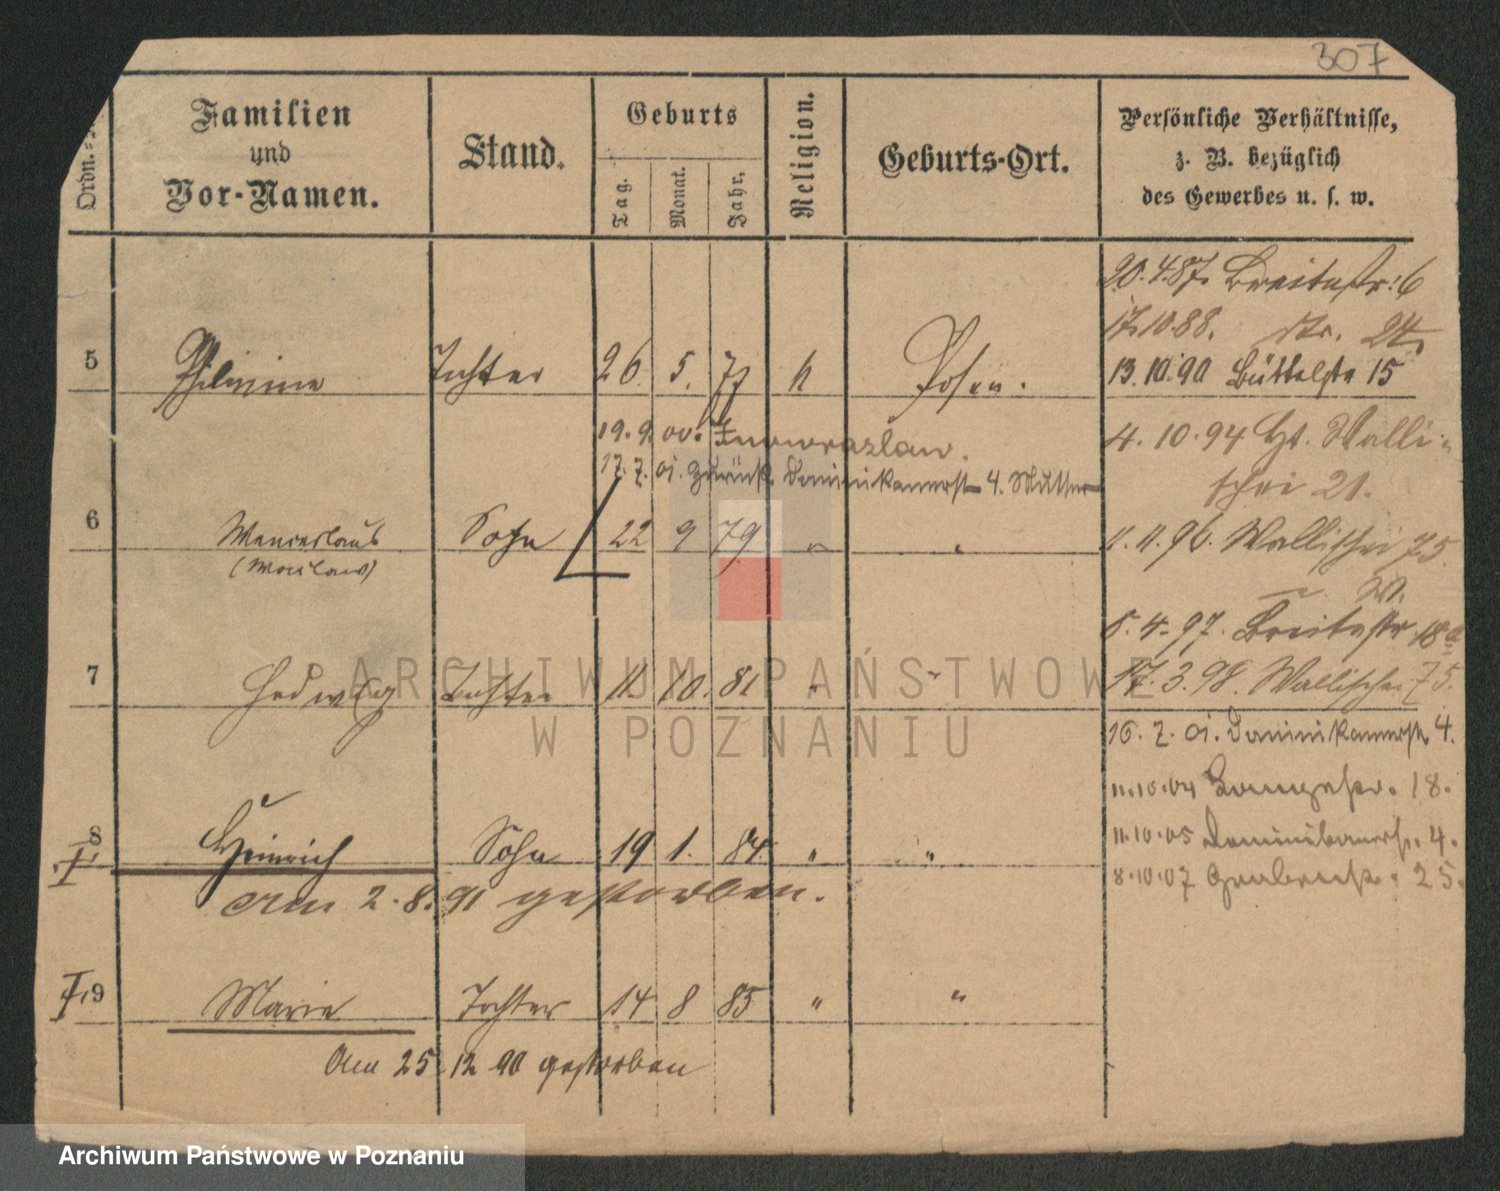 307
Ordn.
Familien
und
Vor-Namen.
Stand.
Geburts
Tag.
Monat.
Jahr.
Religion.
Geburts-Ort.
Persönliche Verhältnisse,
z. B. bezüglich
des Gewerbes u. s. w.
20.4.87. Breitestr. 6
17.10.88. 24
5 Tochter 26. 5. 77 k Posen.
13.10.90 Büttelstr 15
19.9.00. Inowrazlaw.
4.10.94 Walli-
17.7.01. zurück Dominikanerst 4. Mutter
schei 21.
6 Wenceslaus Sohn 22 9 79 " "
96. Wallischei 75.
(Waclaw)
W.
4.97. Breitestr 18a
7 Hedwig Tochter 11. 10. 81 " "
17.3.98. Wallischei 75.
16.7.01. Dominikanerstr 4.
11.10.04 18.
8 Heinrich Sohn 19 1. 84 " "
11.10.05 Dominikanerstr. 4.
am 2.8.91 gestorben.
8.10.07 25.
9 Marie Tochter 14 8 85 " "
Am 25.12 90 gestorben
ARCHIWUM PAŃSTWOWE
W POZNANIU
Archiwum Państwowe w Poznaniu